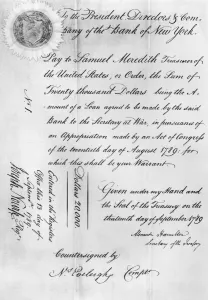 To the President Directors & Com
pany of the Bank of New York.
Pay to Samuel Meredith Treasurer of
the United States, or Order, the Sum of
Twenty thousand Dollars being the A-
mount of a Loan agreed to be made by the said
Bank to the Secretary at War, in pursuance of
an Appropriation made by an Act of Congress
of the twentieth day of August 1789. for
which this shall be your Warrant.
Given under my Hand and
the Seal of the Treasury on the
thirteenth day of September 1789
Alexander Hamilton
Secretary of the Treasury
No. 1
Dollars 20,000.
Entered in the Registers
Office this 13 day of
September 1789
Joseph Nourse Regr.
Countersigned by
Nichs Eveleigh Compr